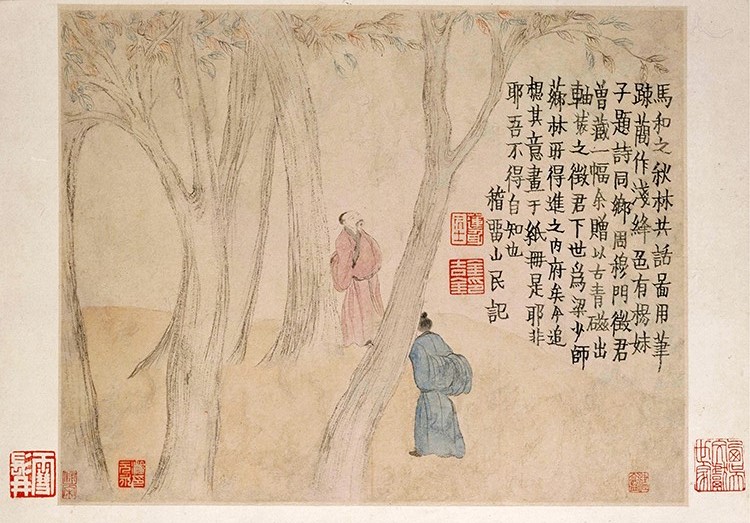 馬和之秋林共話啚用筆
踈蕳作淺絳色有楊妹
子題詩同鄉周穆門徵君
曾藏一幅余贈以古青磁出
軸裝之徵君下世為梁少師
薌林所得進之内府矣今追
想其意畫于紙冊是耶非
耶吾不得自知也
稽畱山民記